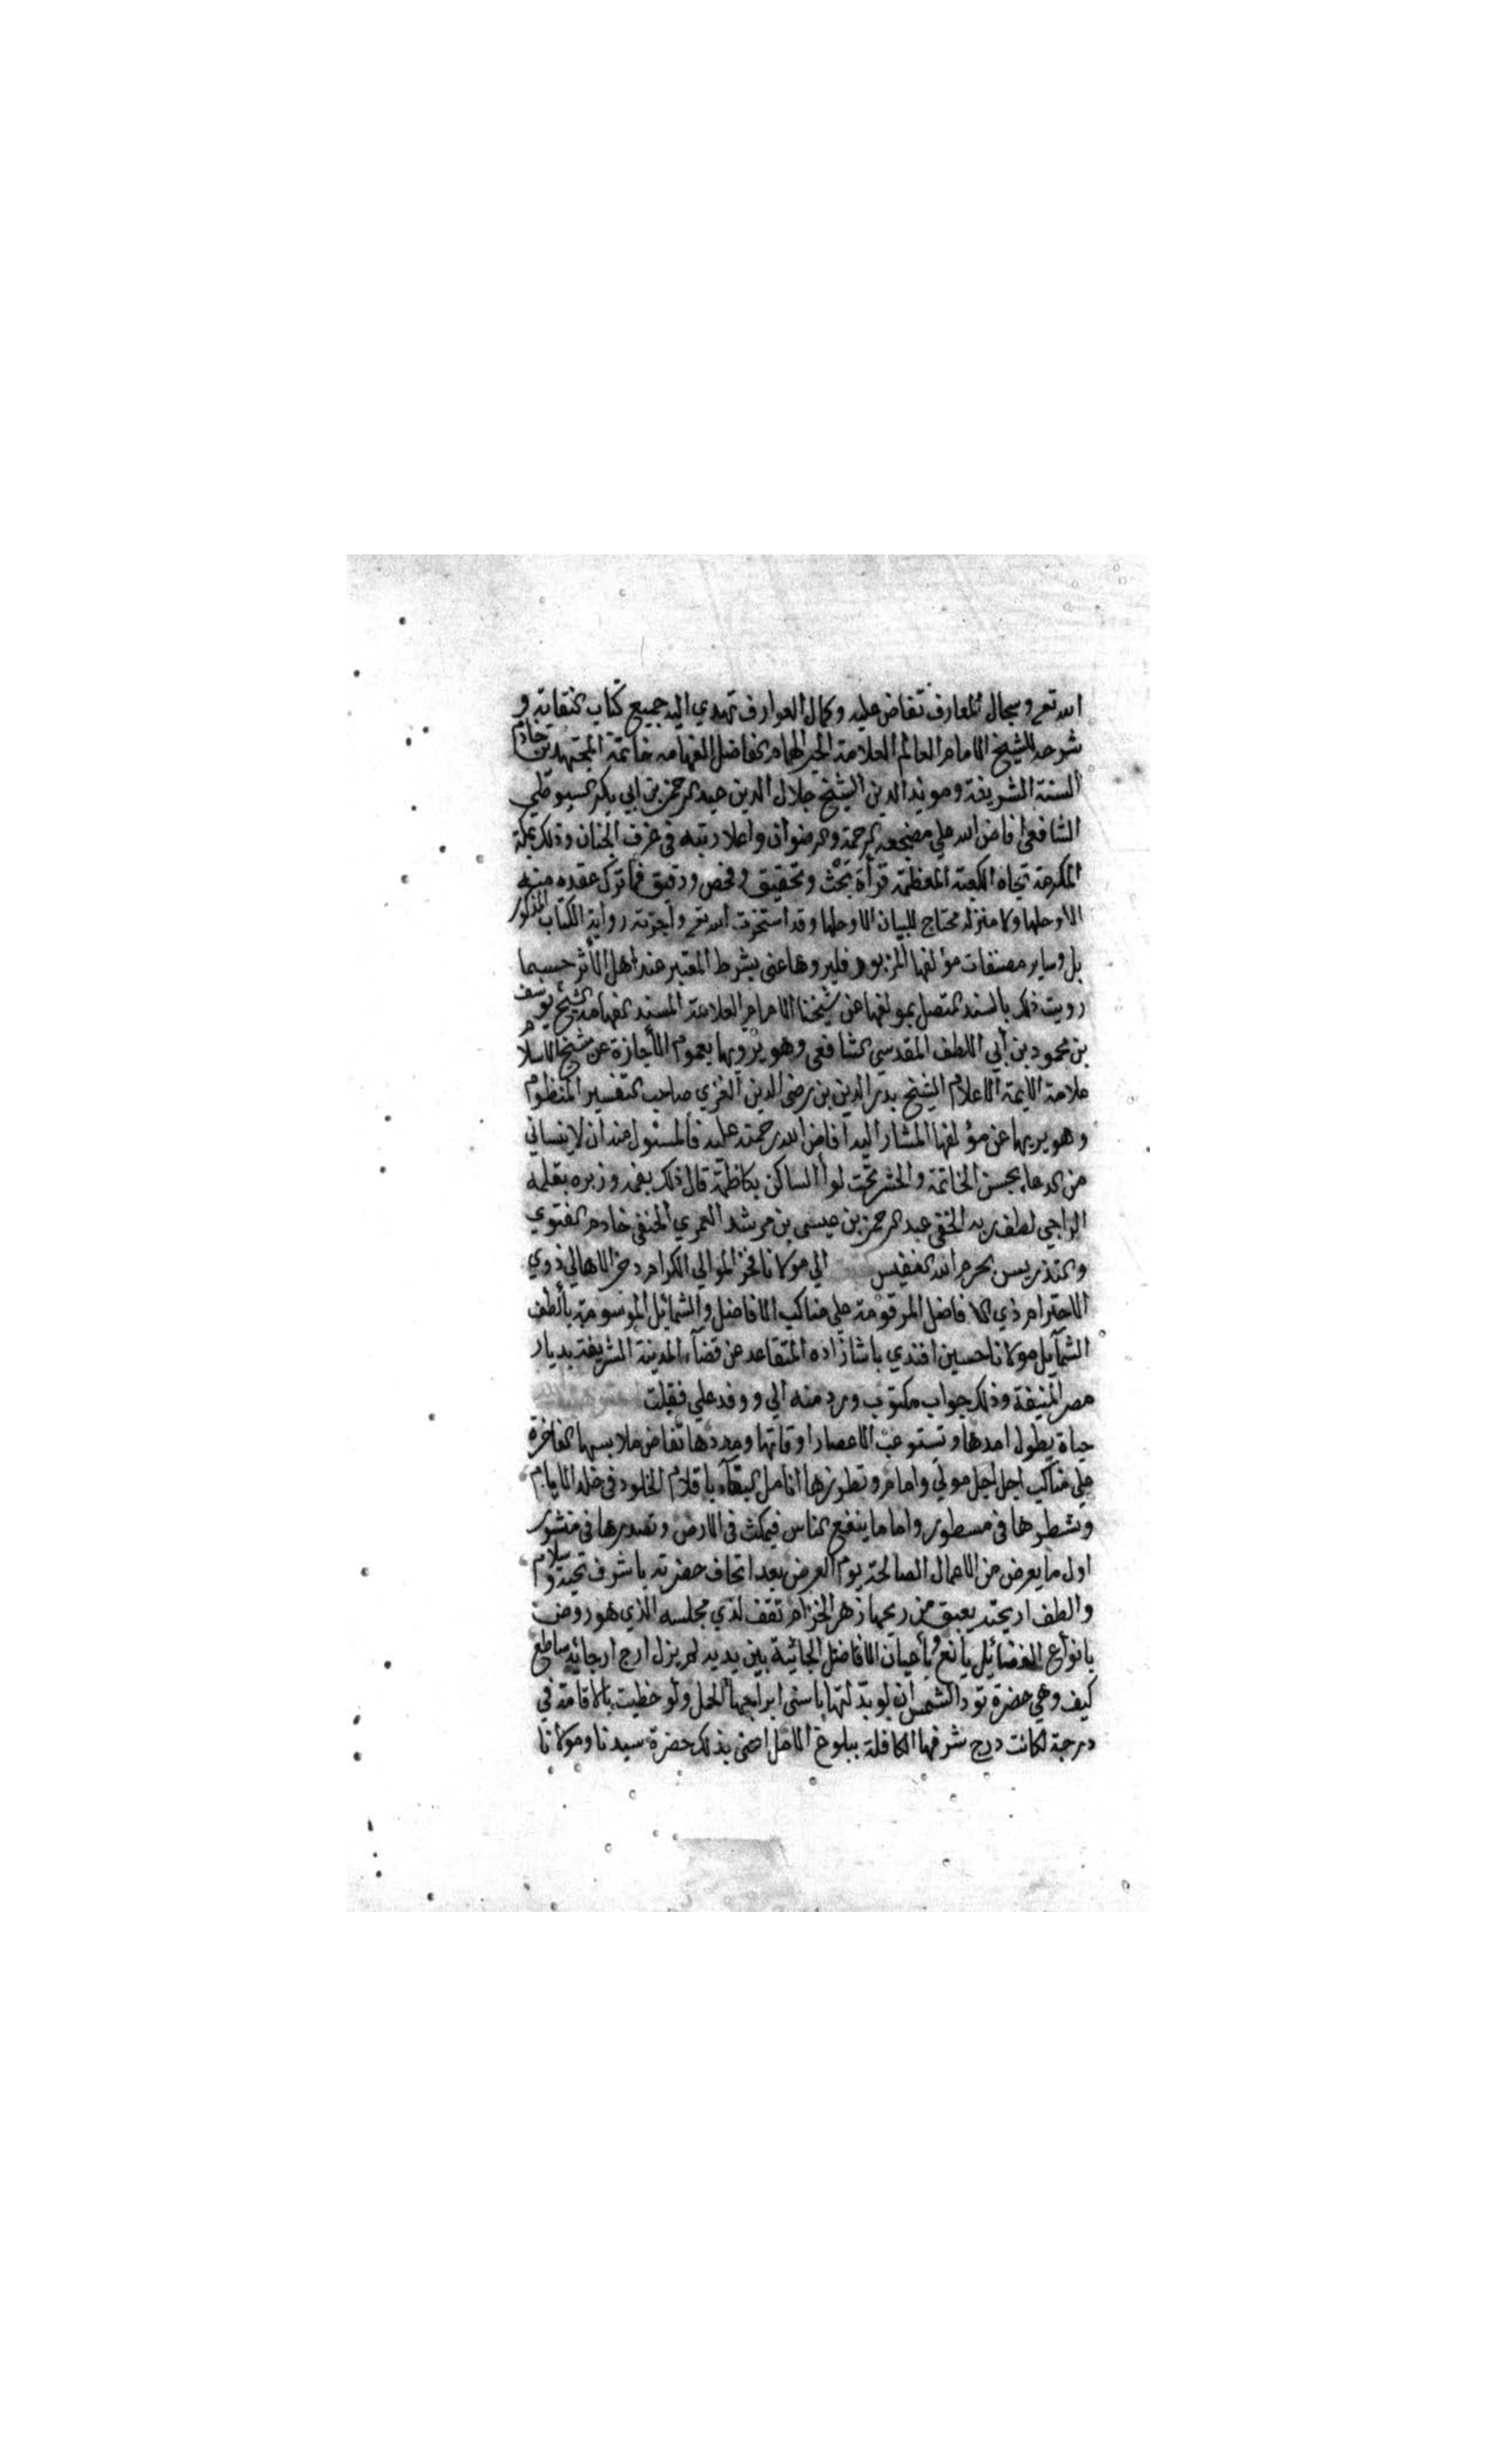 الله تعـ وسجال المعارف تفاض عليه وكمال العوارف تهدي اليه جميع كتاب النقاية و
شرحه للشيخ الامام العالم العلامة الحبر الهمام الفاضل الفهامه خاتمة المجتهدين خادم
السنة الشريفة ومويد الدين الشيخ جلال الدين عبد الرحمن بن ابي بكر السيوطي
الشافعي افاض الله علي مضجعه الرحمة والرضوان واعلا رتبته في غرف الجنان وذلك بمكة
المكرمة تجاه الكعبة المعظمة قرأة بحث وتحقيق وفحص ودقيق فما ترك عقده منيه
الا وحلها ولا منزله محتاج للبيان الا وحلها وقد استخرت الله تعـ وأجزته رواية الكتاب المذكور
بل وساير مصنفات مؤلفها المزبور فليروها عني بشرط المعتبر عند أهل الأثر حسبما
رويت ذلك بالسند المتصل بمولفها عن شيخنا الامام العلامة المسند الفهامة الشيخ يوسف
بن محمود بن أبي اللطف المقدسي الشافعي وهو يرويها بعموم الأجازة عن شيخ الاسلام
علامة الايمة الاعلام الشيخ بدر الدين بن رضي الدين الغزي صاحب التفسير المنظوم
وهو يريها عن مؤلفها المشار اليه أفاض الله رحمته عليه فألمسئول منه ان لا ينساني
من الدعا بحسن الخاتمة والحشر تحت لوأ الساكن بكاظمة قال ذلك بفمه وزبره بقلمه
الراجي لطف ربه الخفي عبد الرحمن بن عيسى بن مرشد العمري الحنفي خادم الفتوي
والتدريس بحرم الله النفيس الي مولانا فخر الموالي الكرام دخر الاهالي ذوي
الاحترام ذي الافاضل المرقومة علي مناكب الافاضل والشمائل الموسومة بألطف
الشمآيل مولانا حسين افندي باشازاده المتقاعد عن قضآء المدينة الشريفة بديار
مصر المنيفة وذلك جواب مكتوب ورد منه الي ووفد علي فقلت
حياة يطول امدها وتستوعب الاعصار اوقاتها ومددها تفاض ملابسها الفاخرة
علي مناكب اجل اجل مولي وامام وتطرزها انامل البقآء باقلام الخلود في خلد الايام
وتشطرها في مسطور واما ما ينفع الناس فيمكث في الارض وتصدرها في منشور
اول ما يعرض من الاعمال الصالحة يوم العرض بعد اتحاف حضرته باشرف تحية وسلام
والطف اريحته يعبق من ريحها زهر الخزام تقف لدي مجلسه الذي هو روض
بانواع الفضائيل يانع وبأعيان الافاضل الجاثية بين يديه لم يزل ارج ارجائه ساطع
كيف وهي حضرة تود الشمس ان لو بدلتها باسنى ابراجها الحمل ولو حظيت بالاقامة في
درجة لكانت درج شرفها الكافلة ببلوغ الامل اعني بذلك حضرة سيدنا ومولانا